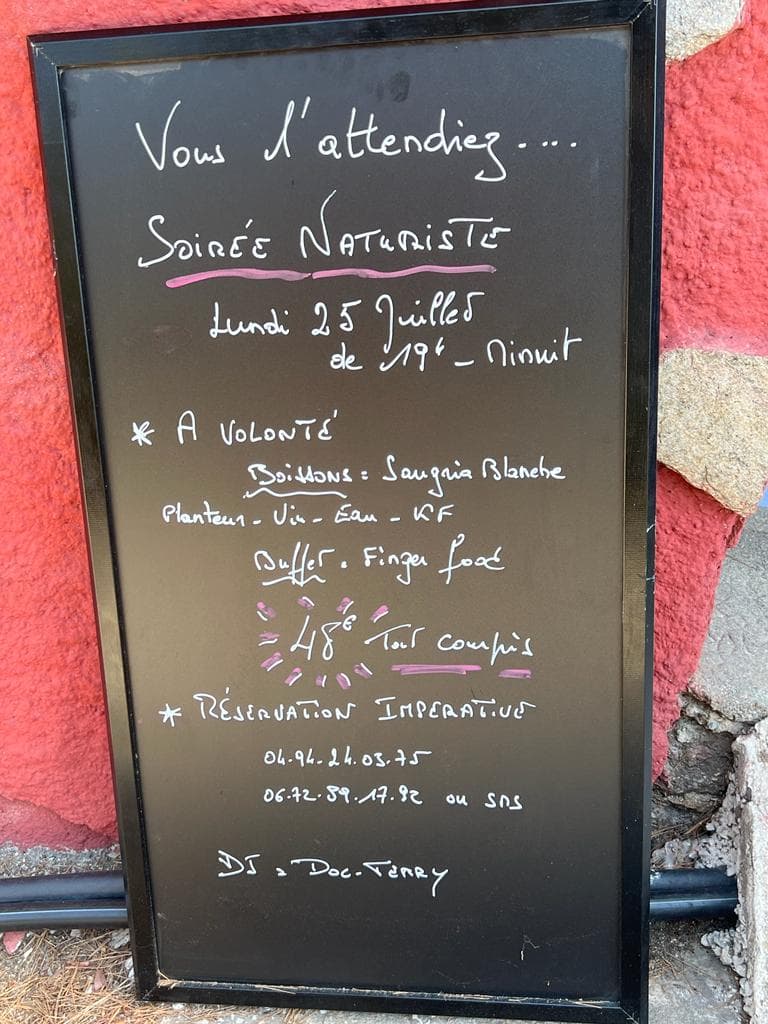 Vous l'attendiez....
SOIRÉE NATURISTE
Lundi 25 Juillet
de 19h - Minuit
* A VOLONTÉ
BOISSONS = Sangria Blanche
Planteur - Vin - Eau - KF
Buffet = Finger food
48€ Tout compris
* RÉSERVATION IMPERATIVE
04.94.24.03.75
06.72.89.17.92 ou SMS
DJ = DOC-TERRY